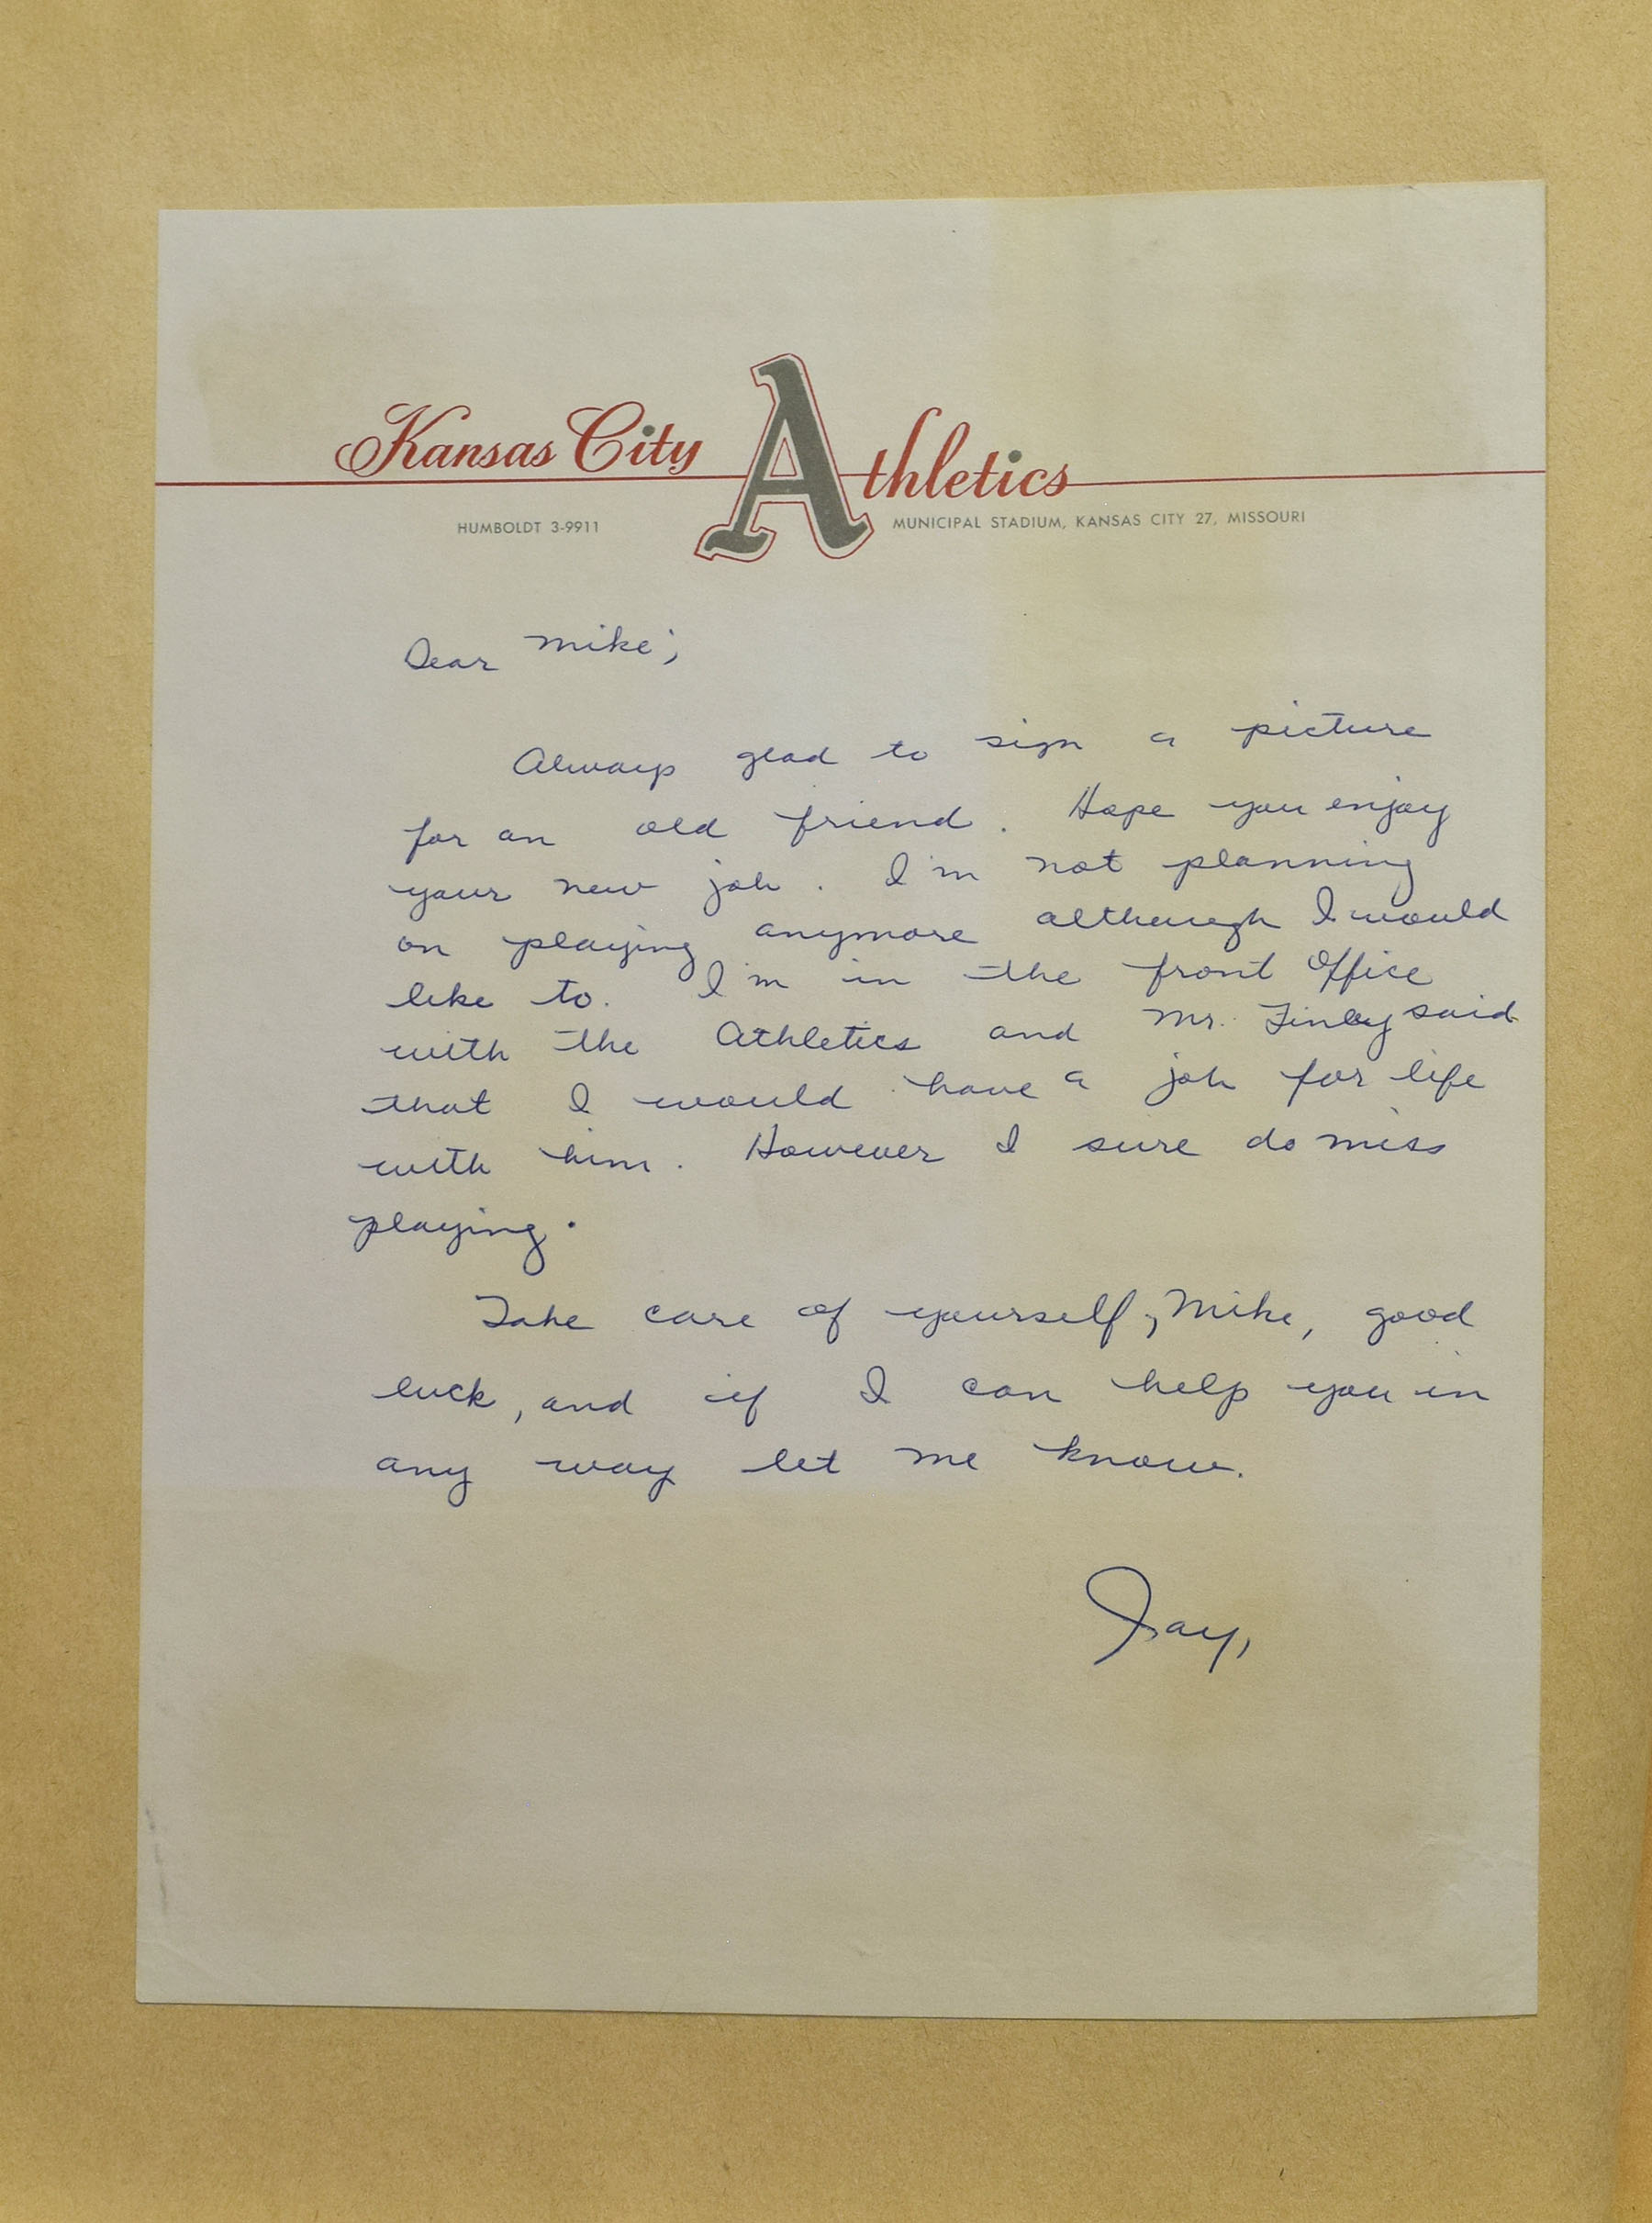 Kansas City Athletics
HUMBOLDT 3-9911 MUNICIPAL STADIUM, KANSAS CITY 27, MISSOURI
Dear Mike;
Always glad to sign a picture
for an old friend. Hope you enjoy
your new job. I'm not planning
on playing anymore although I would
like to. I'm in the front office
with the Athletics and Mr. Finley said
that I would have a job for life
with him. However I sure do miss
playing.
Take care of yourself, Mike, good
luck, and if I can help you in
any way let me know.
Jay,